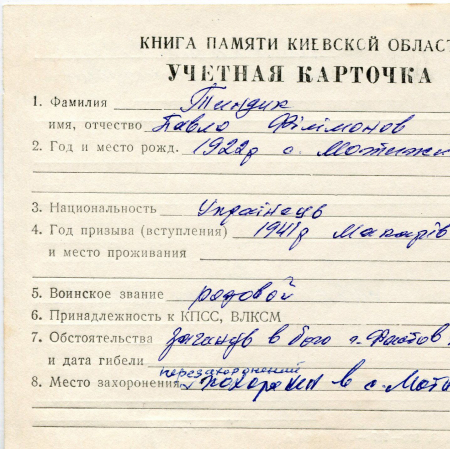 КНИГА ПАМЯТИ КИЕВСКОЙ ОБЛАСТ
УЧЕТНАЯ КАРТОЧКА
1. Фамилия Тиндик
имя, отчество Павло Філімонов
2. Год и место рожд. 1922р с. Мотижи
3. Национальность Українець
4. Год призыва (вступления) 1941р Макарів
и место проживания
5. Воинское звание рядовой
6. Принадлежность к КПСС, ВЛКСМ
7. Обстоятельства в бою г. Фастов
и дата гибели
перезахоронений
8. Место захоронения похоронен в с. Моти